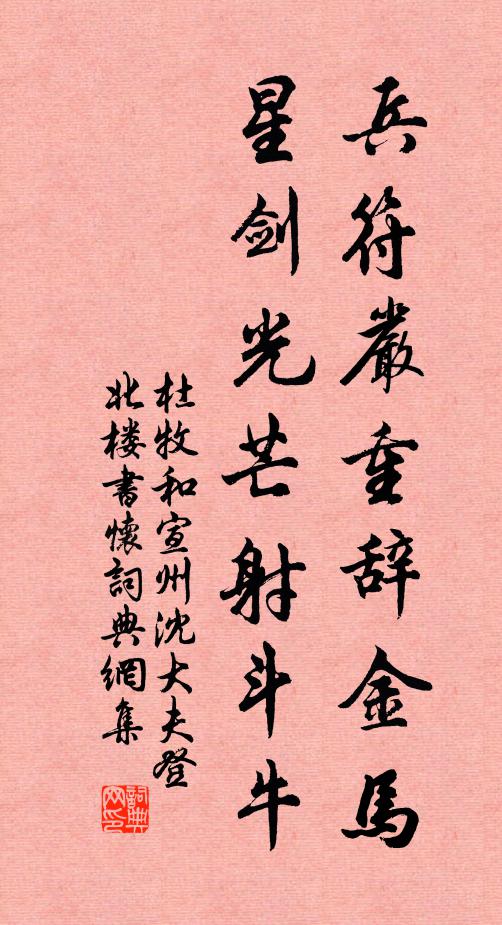 兵符嚴重辞金馬
星剑光芒射斗牛
杜牧和宣州沈大夫登
北楼書懷詞典網集
詞典网印